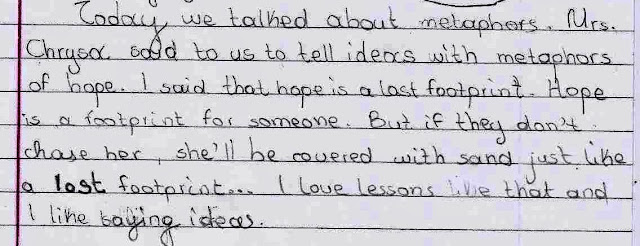 Today, we talked about metaphors. Mrs.
Chrysa said to us to tell ideas with metaphors
of hope. I said that hope is a lost footprint. Hope
is a footprint for someone. But if they don't
chase her, she'll be covered with sand just like
a lost footprint... I love lessons like that and
I like saying ideas.